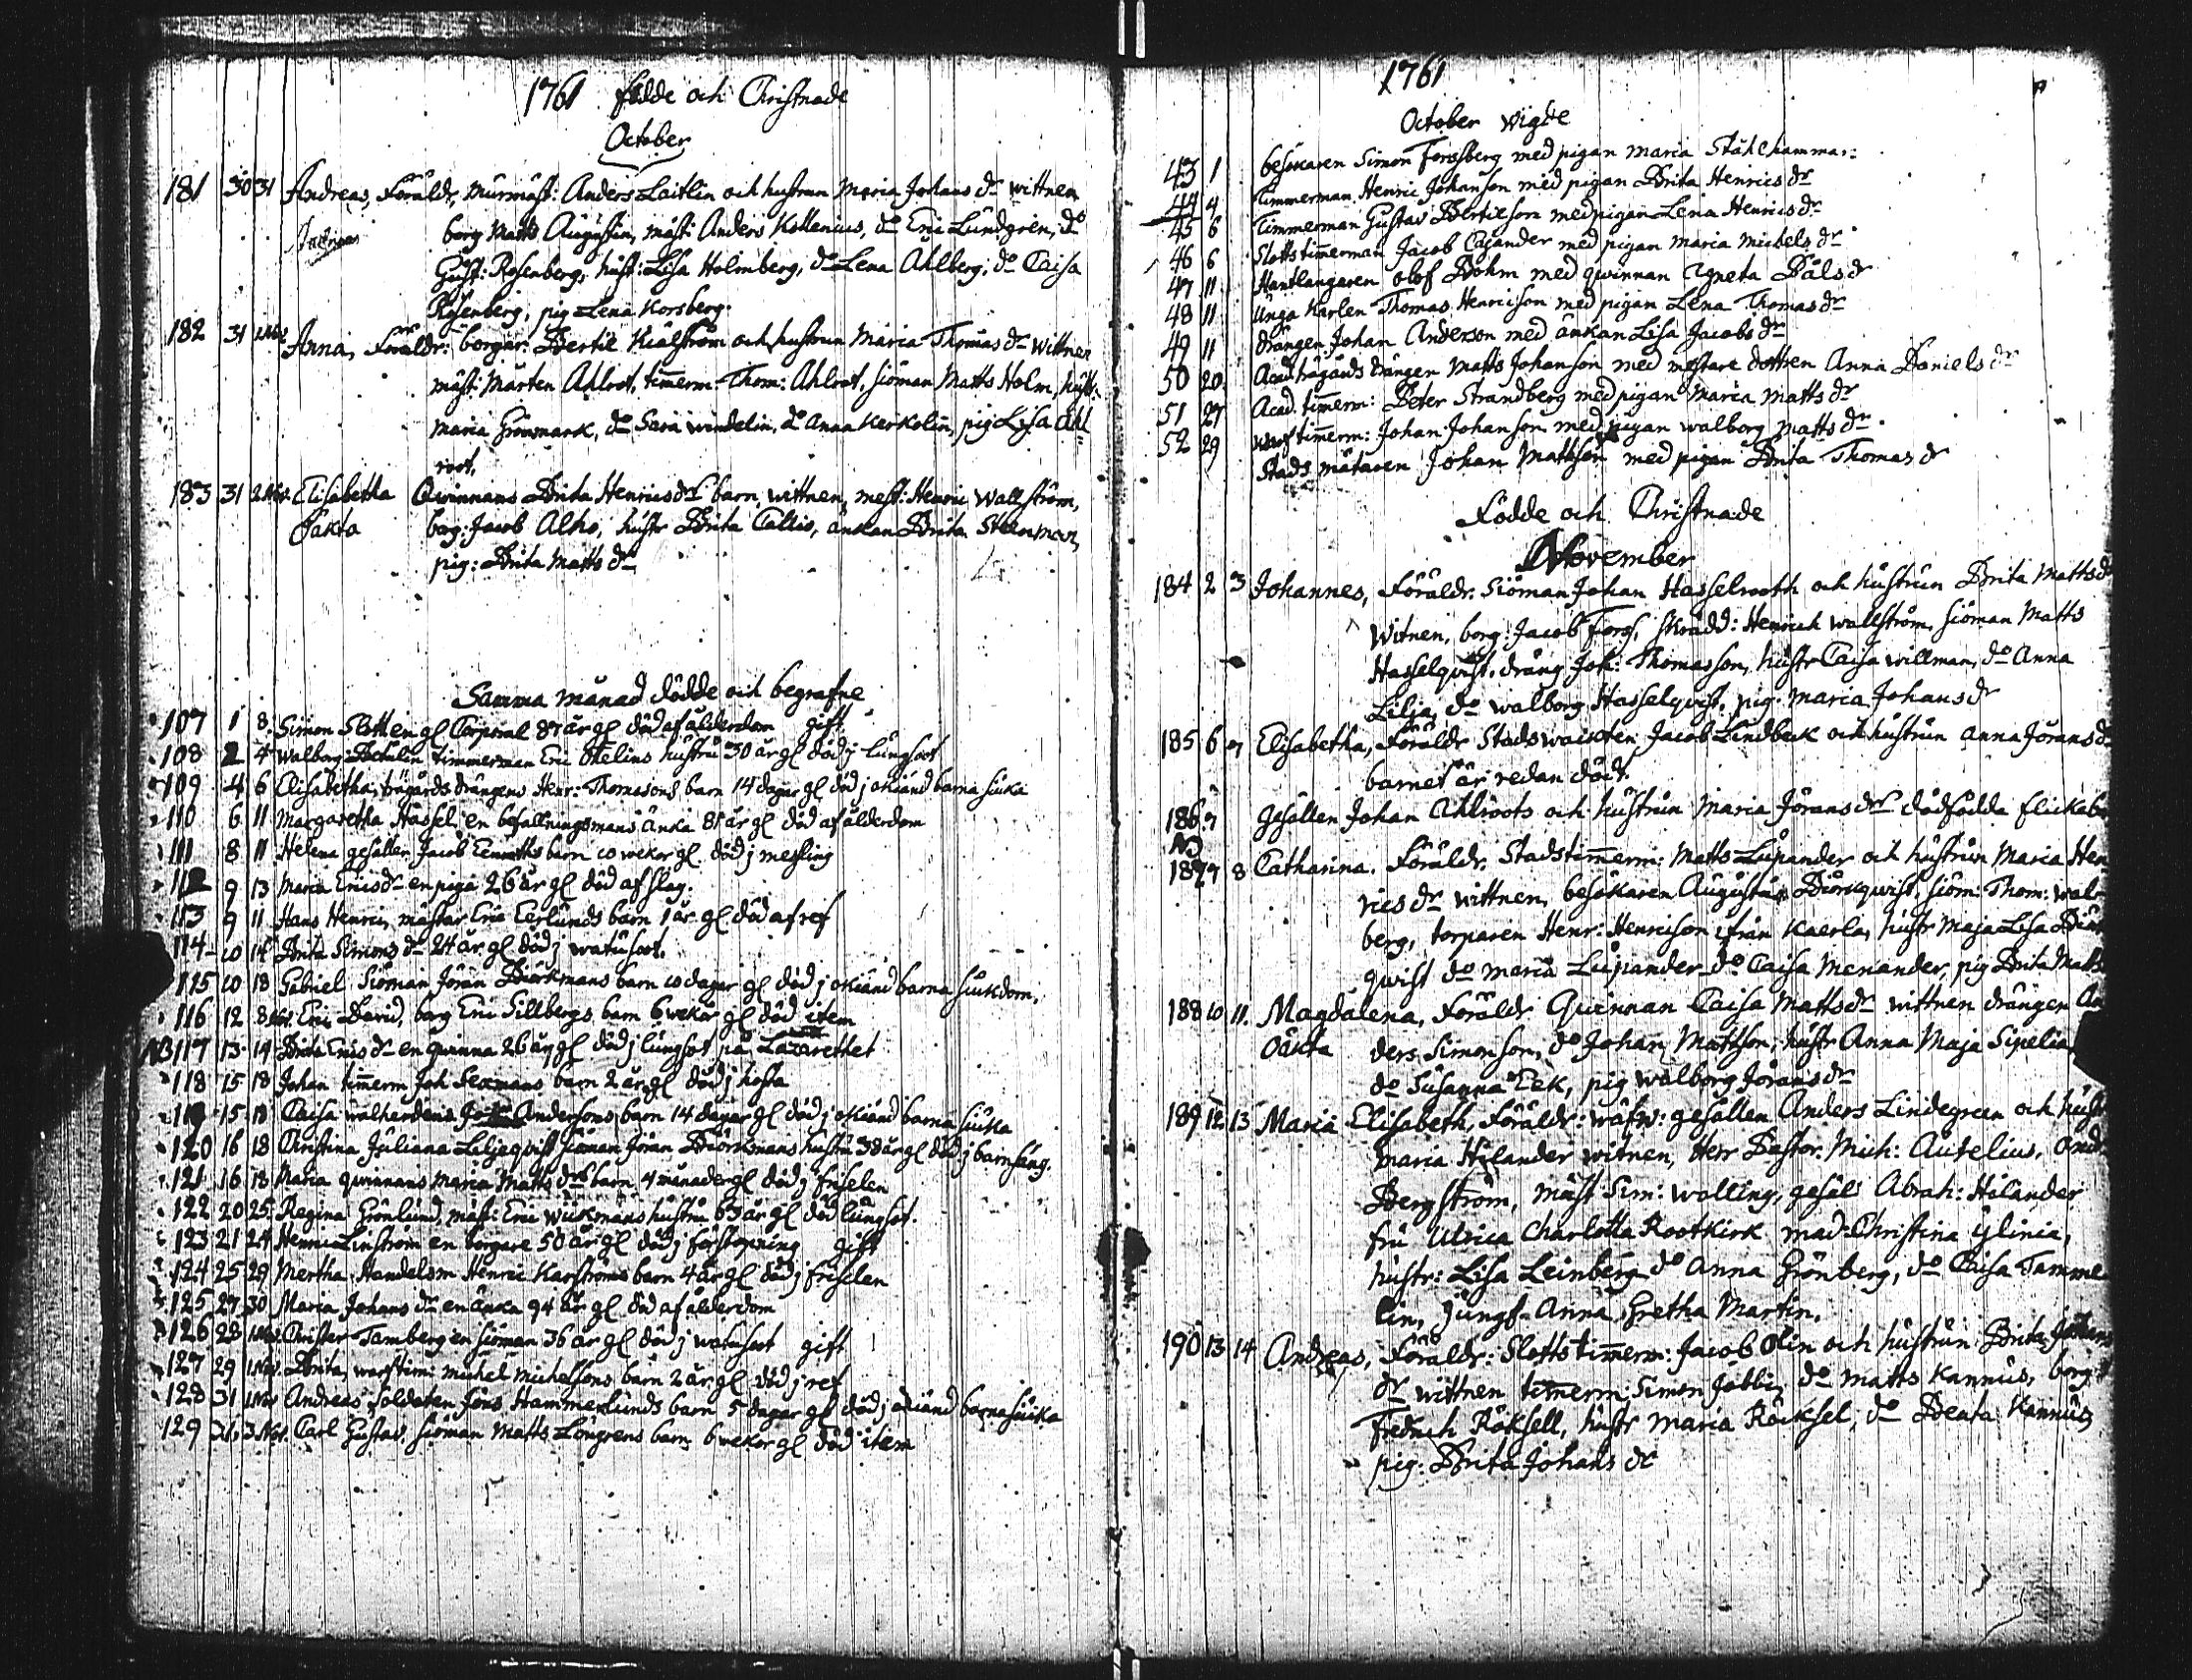 1761 födde och Christnade
October
181 30 31 Andreas, Föräldr. Murmäst: Anders Laitlin och hustrun Maria Johans dr wittnen
Andreas borg Matts Augustin, mäst: Anders Kollenius, do Eric Lundgren, do
Gust: Rosenberg, hust: Lisa Holmberg, do Lena Ahlberg, do Caisa
Rosenberg, pig Lena Korsberg.
182 31 1 Nov Anna, Föräldr: borgar: Bertil Kiälström och hustrun Maria Thomas dr Wittnen
mäst: Mårten Ahlrot, timerm. Thom: Ahlrot, siöman Matts Holm, hust:
maria Grönmark, do Sara windelin, do Anna Kerkolin, pig Lisa Ahl=
root,
183 31 2 Nov. Elisabetha Qwinnans Brita Henricsdrs barn, wittnen, mest: Henric Wallström,
Oäkta borg: Jacob Alho, hustr Brita Callio, änkan Brita Stenman,
pig: Brita Matts dr
Samma månad dödde och begrafne
107 1 8. Simon Slotten gl Corporal 87 år gl död af ålderdom gift
108 2 4 Walborg Bohulin timmerman Eric Okelins hustru 30 år gl död j lungsoot
109 4 6 Elisabetha, trägårds drängens Henr: Thomasons barn 14 dagar gl död j okiänd barna siuka
110 6 11 Margaretha Hassel: en befallningsmans änka 81 år gl död af ålderdom
111 8 11 Helena gesällen Jacob barn 10 wekor gl död j messling
112 9 13 Maria Ericsdr en piga 26 år gl död af slag.
113 9 11 Hans Henric, mästar Eric Eerlunds barn 1 år gl död af ref
114 10 14 Brita Simons dr 24 år gl död j watusoot.
115 10 18 Gabriel Siöman Jöran Biörkmans barn 10 dagar gl död j okiänd barna siukdom.
116 12 8 Nov. Eric David, borg Eric Sillbergs barn 6 wekor gl död item
NB 117 13 14 Brita Ericsdr en qwinna 26 år gl död j lungsot på Lazarettet
118 15 18 Johan timerm Joh Sexmans barn 2 år gl död j hosta
119 15 18 Caisa Andersons barn 14 dagar gl död j okiänd barna siuka
120 16 18 Christina Juliana Liljeqvist siöman Jöran Biörkmans hustru 38 år gl död j barnsäng.
121 16 18 Maria qwinnans Maria Matts drs barn 4 månader gl död j friselen
122 20 25 Regina Grönlund, mäst: Eric Wickmans hustru 63 år gl död lungsot.
123 21 24 Henric Linström en borgare 50 år gl död j förstopning gift
124 25 29 Mertha, Handelsm Henric Karströms barn 4 år gl död j friselen
125 27 30 Maria Johans dr en änka 94 år gl död af ålderdom
126 28 1 Nov. Christer Tamberg en siöman 36 år gl död j watusoot gift
127 29 1 Nov. Brita, warfstim: michel michelsons barn 2 år gl död j ref
128 31 1 Nov Andreas soldaten Jöns Hammarlunds barn 5 dagar gl död j okiänd barnasiuka
129 31. 3 Nov. Carl Gustav, siöman Matts Löngrens barn 6 wekor gl död item
1761
October wigde
43 1 besökaren Simon Forssberg med pigan maria Stålhammar:
44 4 Timmerman Henric Johanson med pigan Brita Henrics dr
45 6 Timmerman Gustav Bertilson med pigan Lena Henrics dr
46 6 Slottstimerman Jacob Cajander med pigan maria michels dr
47 11 Hantlangaren olof Bohm med qwinnan Agneta Påls dr
48 11 Unga Karlen Thomas Henricson med pigan Lena Thomas dr
49 11 drängen Johan Anderson med änkan Lisa Jacobs dr
50 20 Acad trägårds drängen Matts Johanson med mestare dottren Anna Daniels dr
51 27 Acad. timerm: Peter Strandberg med pigan Maria Matts dr
52 29 warfs timerm: Johan Johanson med pigan walborg matts dr
Stads mätaren Johan Mathson med pigan Brita Thomas dr
Födde och Christnade
November
184 2 3 Johannes, Föräldr. Siöman Johan Hasselrooth och hustrun Brita Matts dr
Witnen, borg: Jacob Forss, skrädd: Henrich wallström, siöman Matts
Hasselqvist, dräng Joh: Thomasson, hustr Caisa willman, do Anna
Lilja, do walborg Hasselqvist, pig maria Johans dr
185 6 7 Elisabetha, Föräldr Stadswackten Jacob Lindbeck och hustrun Anna Jörans dr
barnet är redan dödt.
186 7 gesällen Johan Ahlroots och hustrun Maria Jörans drs dödfödda flickeba
NB
187 7 8 Catharina. Föräldr. Stadstimerm: Matts Lupander och hustrun Maria Hen
rics dr wittnen, besökaren Augustus Biörkqwist, siöm: Thom: wal=
berg, torparen Henr: Henricson ifrån Kaerla, hustr Maja Lisa Biör
qwist do maria Lupander do Caisa Menander, pig Brita Matts
188 10 11. Magdalena, Föräldr Qwinnan Caisa Mattsdr wittnen drängen An
Oäkta ders Simonson, do Johan Mattson, hustr Anna Maja Sipelia
do Susanna Eek, pig walborg Jörans dr
189 12 13 Maria Elisabeth, Föräldr: wäfw: gesällen Anders Lindegreen och hust
Maria Hilander witnen, Herr Pastor. Mich: Autelius, And:
Bergström, Mäst Sim: walling, gesäl Abrah: Hilander
fru Ulrica Charlotta Rootkirk mad Christina Ylinia,
hustr: Lisa Leinberg do Anna Grönberg, do Caisa Tamme
lin, Jungf Anna Gretha Martin.
190 13 14 Andreas, Föräldr: Slottstimerm: Jacob Olin och hustrun Brita Johans
dr wittnen timerm: Simon Jobbi, do Matts Kannus, borg:
Fredrich Röksell, hustr Maria Röcksel, do Beata Kannus
pig: Brita Johans dr